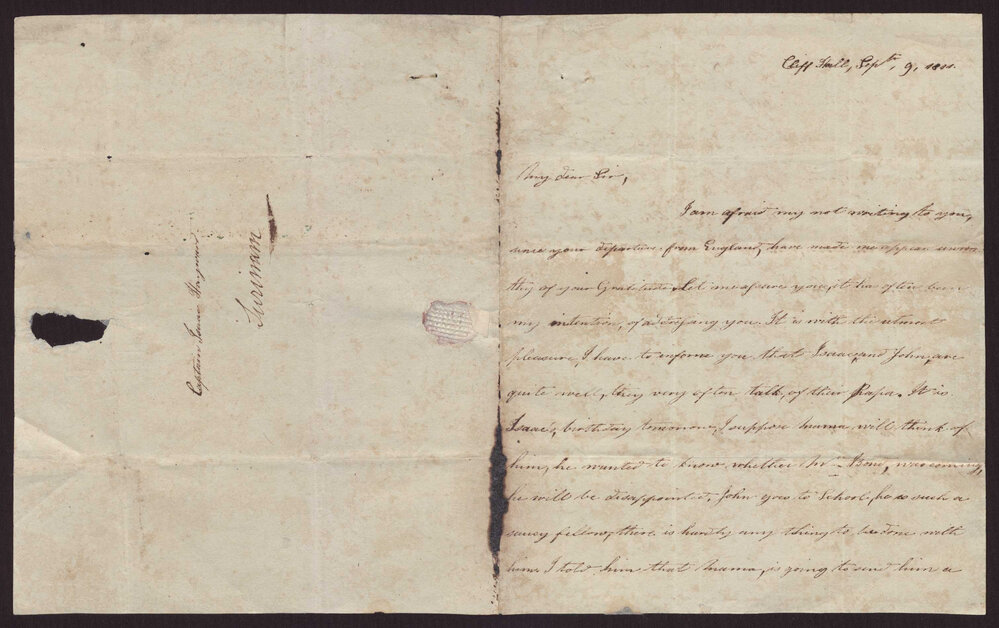 Captain Isaac
Surinam
Cliff Hall, Septr. 9, 1801.
My dear Sir,
I am afraid my not writing to you,
since your departure from England, have made me appear unwor
thy of your Gratitude, Let me assure you, it has often been
my intention, of addressing you. It is with the utmost
pleasure, I have to inform you that Isaac, and John, are
quite well, they very often talk, of their Papa. It is
Isaac's birthday tomorrow, I suppose mama will think of
him, he wanted to know, whether Mr. Bond, was coming,
he will be disappointed, John goes to School, he is such a
saucy fellow, there is hardly any thing to be done with
him, I told him that Mama, is going to send him a